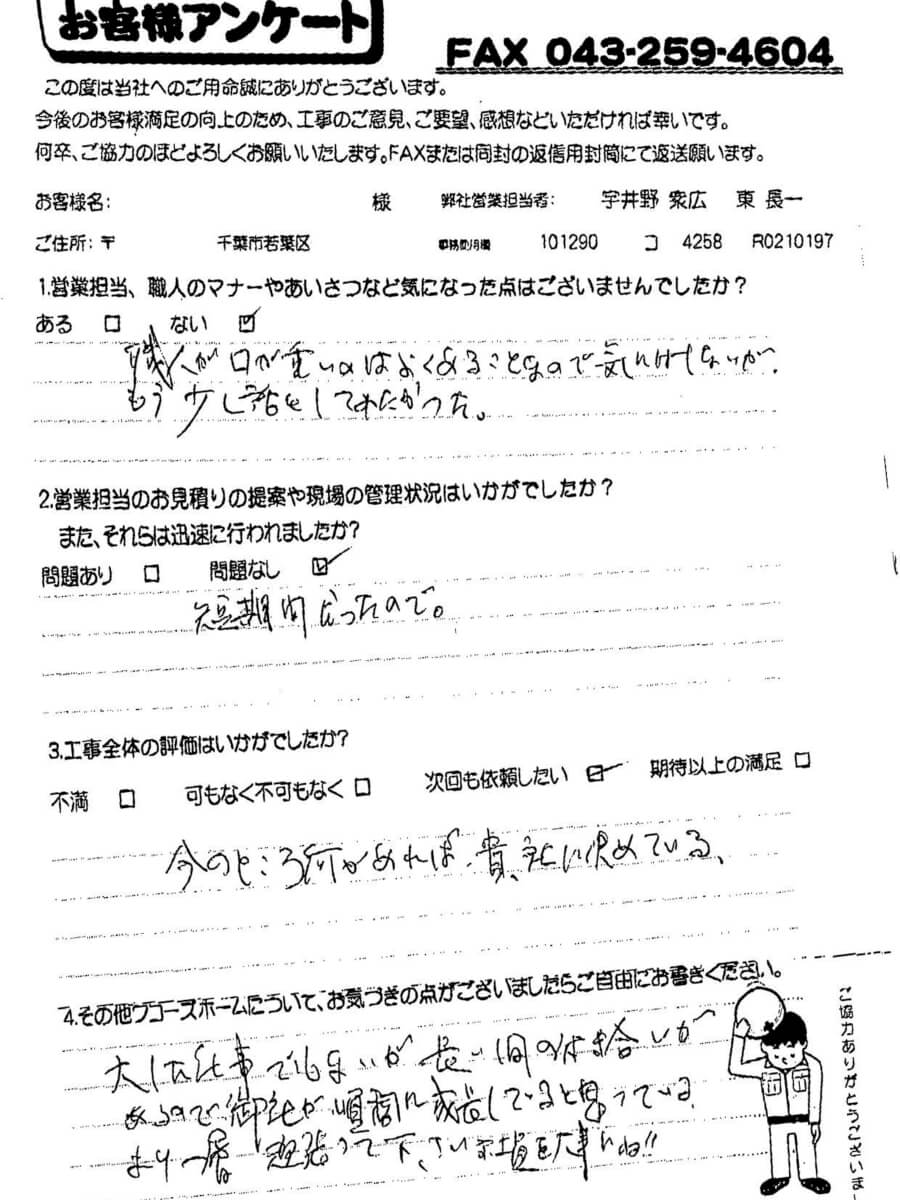 お客様アンケート
FAX 043-259-4604
この度は当社へのご用命誠にありがとうございます。
今後のお客様満足の向上のため、工事のご意見、ご要望、感想などいただければ幸いです。
何卒、ご協力のほどよろしくお願いいたします。FAXまたは同封の返信用封筒にて返送願います。
お客様名: 様 弊社営業担当者: 宇井野 衆広 東 長一
ご住所:〒 千葉市若葉区 101290 コ 4258 R0210197
1.営業担当、職人のマナーやあいさつなど気になった点はございませんでしたか?
ある □ ない ☑
職人が口が重いのはよくあることなので気にかけしないが、
もう少し話をしてみたかった。
2.営業担当のお見積りの提案や現場の管理状況はいかがでしたか?
また、それらは迅速に行われましたか?
問題あり □ 問題なし ☑
短期間だったので。
3.工事全体の評価はいかがでしたか?
不満 □ 可もなく不可もなく □ 次回も依頼したい ☑ 期待以上の満足 □
今のところ何かあれば、貴社に決めている、
4.その他ウコーズホームについて、お気づきの点がございましたらご自由にお書きください。
大した仕事でもないが長い間のお付合いが
あるので御社が順調に成長していると思っている
より一層頑張って下さい 社員を大事にね!!
ご協力ありがとうございま